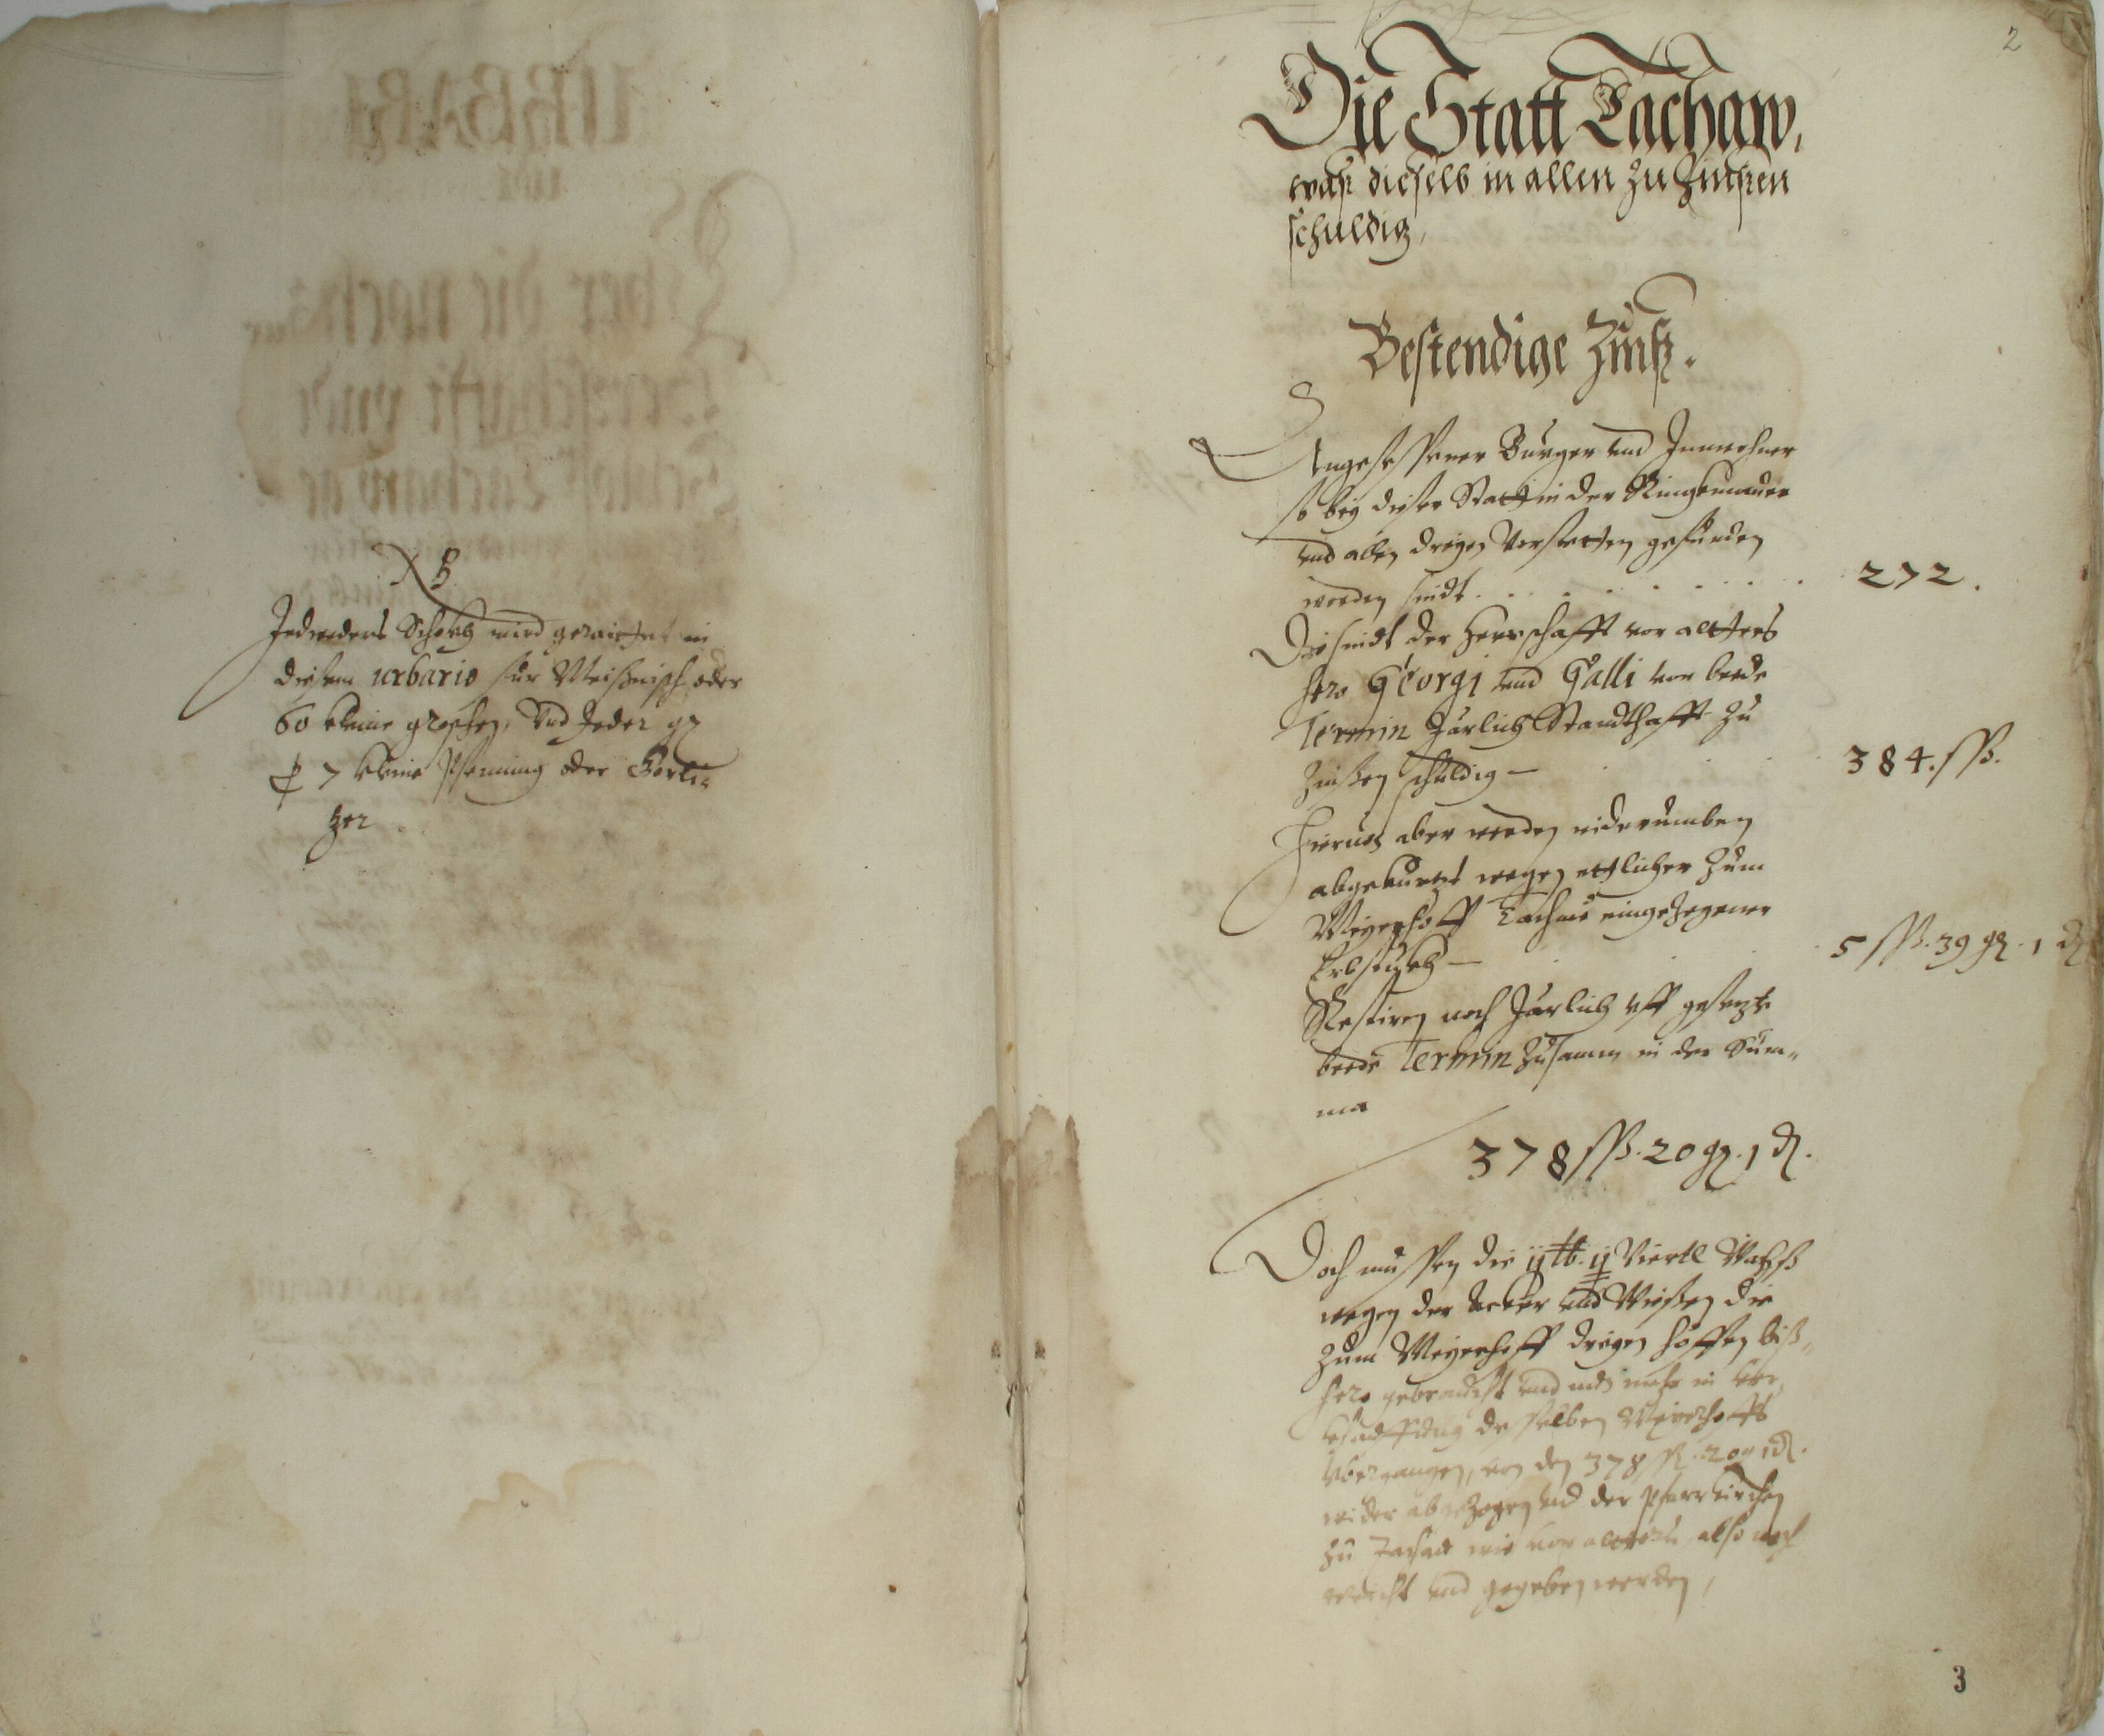 NB
Jedweders Schokh wird geraittet in
diesem urbario für Meißnisch oder
60 kleine groschen, Vnd Jeder gr
p 7 kleine Pfenning oder Görli-
zer
2
Die Statt Tachaw,
waß dieselb in allen zu Zinßen
schuldig,
Bestendige Zinß.
Angesessener Burger und Innwohner
so bey dieser Statt in der Ringkmauer
und allen dreyen Vorstetten gefunden
worden sindt . . . . . . 272.
Die sindt der Herrschafft vor alters
hero Georgi und Galli vor beede
Termin Järlich Standthafft zu
Zinßen schuldig — 384. ßß.
Hieruon aber werden widerumben
abgekurtzt wegen ettlicher zum
Meyerhoff Tachau eingezogener
Erbstückh — 5 ßß. 39 gr. 1 d
Restiren noch Järlich vff gesetzte
beede Termin zusamen in der Sum-
ma
378 ßß. 20 gr. 1 d.
Doch mussen die ij tb. ij Viertl Wachß
wegen der Äcker und Wießen die
zum Meyerhoff dreyen höffen biß-
hero gebraucht und mehr in
desselben Meyerhoffs
Vbergangen, von den 378 ß. 20 gr 1 d.
wider abgezogen und der Pfarrkirchen
zu Tachau wie von alters also noch
gereicht und gegeben werden,
3